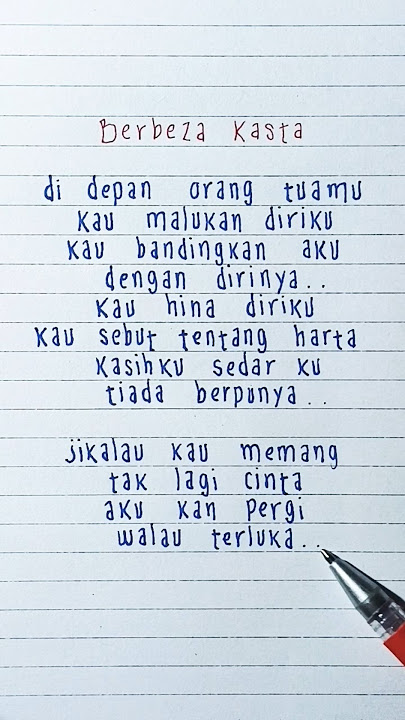 Berbeza Kasta
di depan orang tuamu
kau malukan diriku
kau bandingkan aku
dengan dirinya..
kau hina diriku
kau sebut tentang harta
kasihku sedar ku
tiada berpunya..
jikalau kau memang
tak lagi cinta
aku kan pergi
walau terluka..